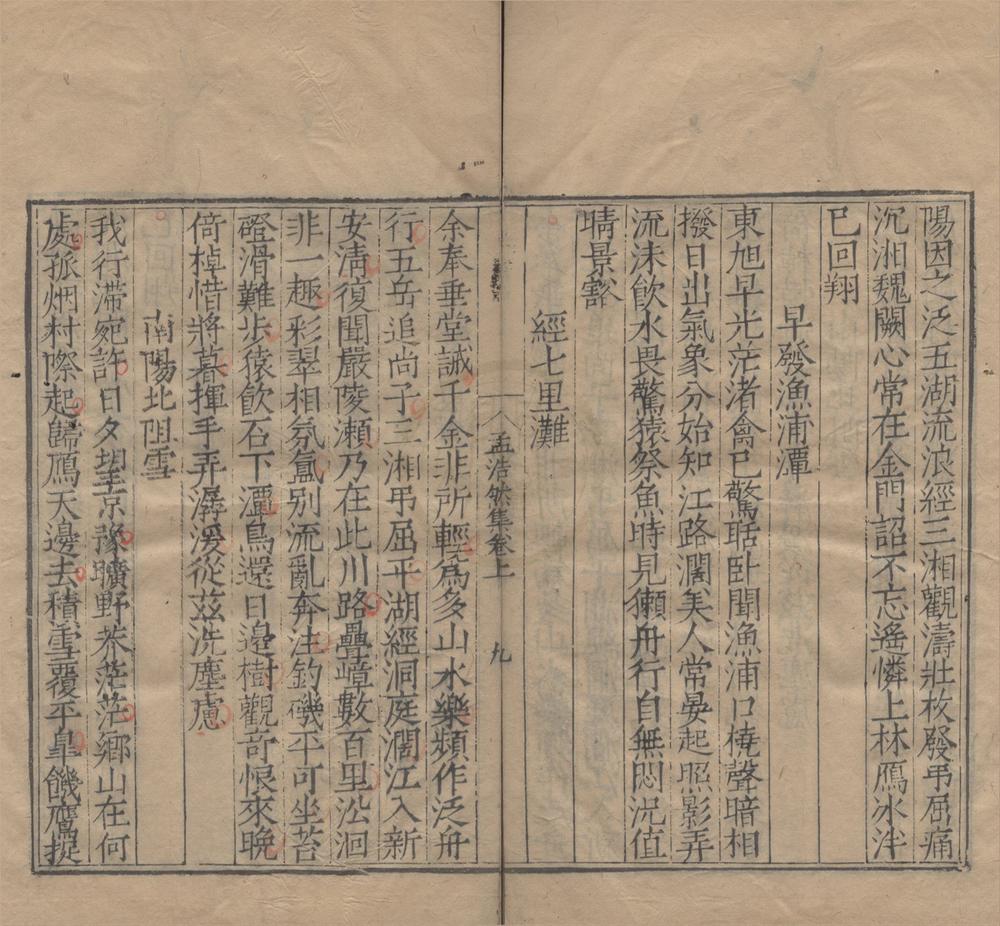 陽因之泛五湖流浪經三湘觀濤壯枚發弔屈痛
沉湘魏闕心常在金門詔不忘遙憐上林鴈冰泮
已回翔
早發漁浦潭
東旭早光茫渚禽已驚聒卧聞漁浦口橈聲暗相
撥日出氣象分始知江路濶美人常晏起照影弄
流沫飲水畏驚猿祭魚時見獺舟行自無悶況值
晴景豁
經七里灘
孟浩然集卷上
九
余奉垂堂誡千金非所輕爲多山水樂頻作泛舟
行五岳追尚子三湘弔屈平湖經洞庭濶江入新
安淸復聞嚴陵瀨乃在此川路疊嶂數百里沿洄
非一趣彩翠相氛氳别流亂奔注釣磯平可坐苔
磴滑難步猿飲石下潭鳥還日邊樹觀奇恨來晩
倚棹惜將暮揮手弄潺湲從茲洗塵慮
南陽北阻雪
我行滯宛許日夕望京豫曠野莽茫茫鄉山在何
處孤烟村際起歸鴈天邊去積雪覆平皐饑鷹捉